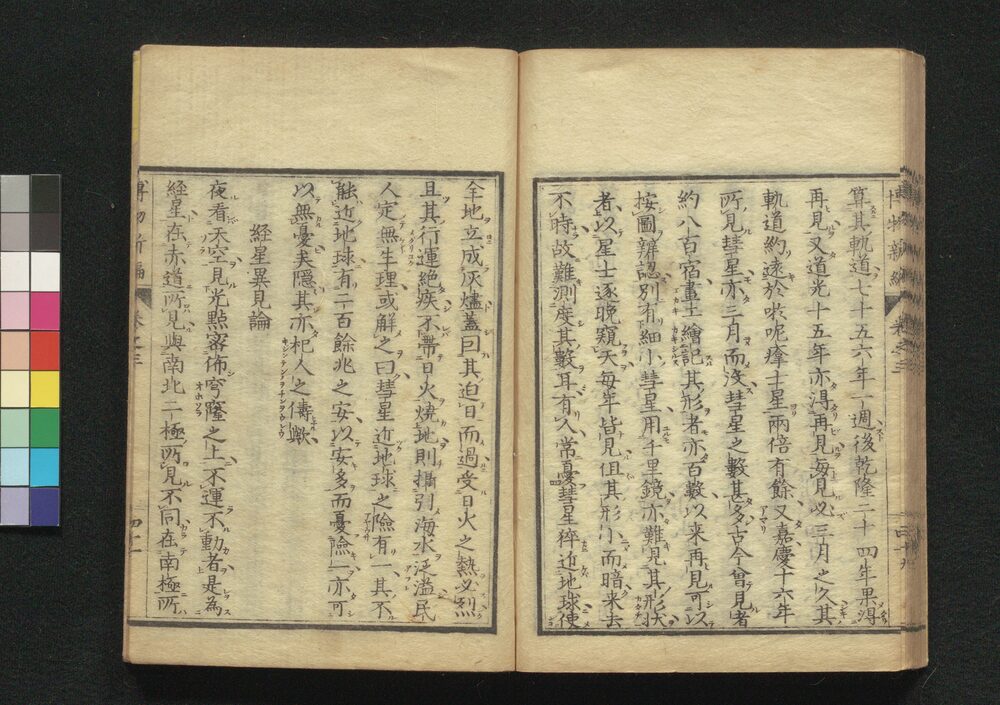 算其軌道七十五六年一週後乾隆二十四年果淂
再見又道光十五年亦淂再見每見必三月之久其
軌道約遠於㕭呢㾗士星兩倍有餘又嘉慶十六年
所見彗星亦三月而没彗星之數甚多古今曾見者
約八百宿畫士繪記其形者亦百數以来再見可以
按圖辨認別有細小彗星用千里鏡亦難見其形狀
者以星士逐晚窺天每年皆見但其形小而暗来去
不時故難測度其數耳有人常憂彗星猝近地球使
全地立成灰燼蓋曰其迫日而過受日火之熱必烈
且其行運絶疾不帶日火燒地則攝引海水泛濫民
人定無生理或解之曰彗星近地球之險有一其不
能近地球有二百餘兆之安以安多而憂險一亦可
以無憂矣隱其亦杞人之儔歟
経星異見論
夜看天空見光點密佈穹窿之上不運不動者是為
経星在赤道所見與南北二極所見不同在南極所